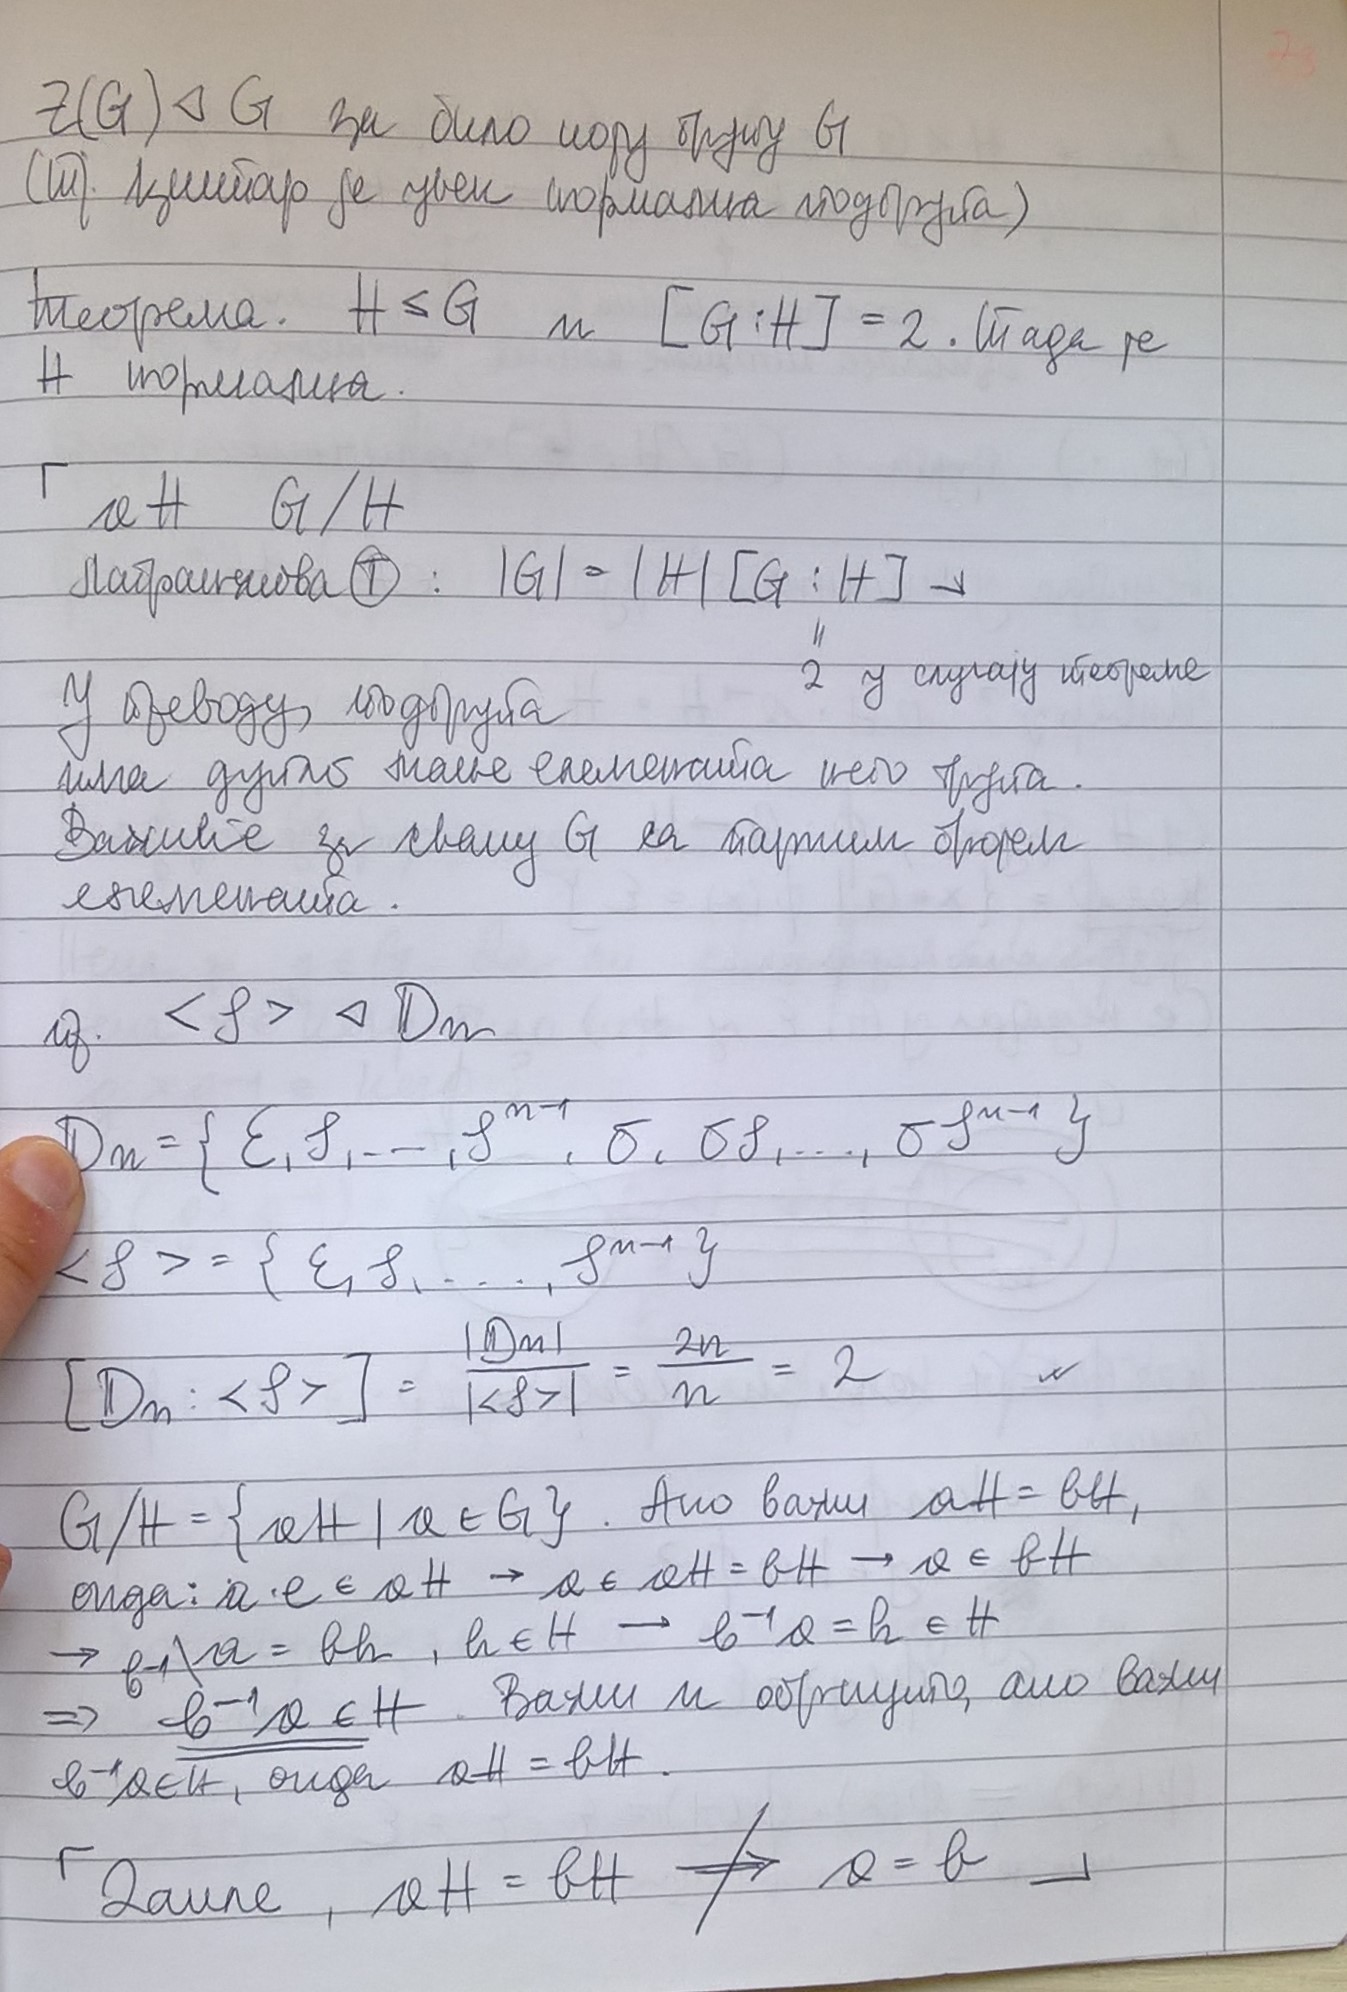 Z(G) ⊲ G за било коју групу G
(тј. центар је увек нормална подгрупа)
Теорема. H ≤ G и [G:H] = 2. Тада је
H нормална.
⌜ aH G/H
Лагранжова Ⓣ: |G| = |H| [G:H] ⌟
" 2 у случају теореме
У преводу, подгрупа
има дупло мање елемената него група.
Важиће за сваку G са парним бројем
елемената.
пр. <ρ> ⊲ 𝔻n
𝔻n = { ε, ρ, ..., ρ^{n-1}, σ, σρ, ..., σρ^{n-1} }
<ρ> = { ε, ρ, ...., ρ^{n-1} }
[𝔻n : <ρ>] = |𝔻n| / |<ρ>| = 2n / n = 2 ✓
G/H = { aH | a ∈ G }. Ако важи aH = bH,
онда: a·e ∈ aH → a ∈ aH = bH → a ∈ bH
→ b^{-1} \ a = bh, h ∈ H → b^{-1}a = h ∈ H
⇒ b^{-1}a ∈ H. Важи и обрнуто, ако важи
b^{-1}a ∈ H, онда aH = bH.
⌜ Дакле, aH = bH ⇏ a = b ⌟